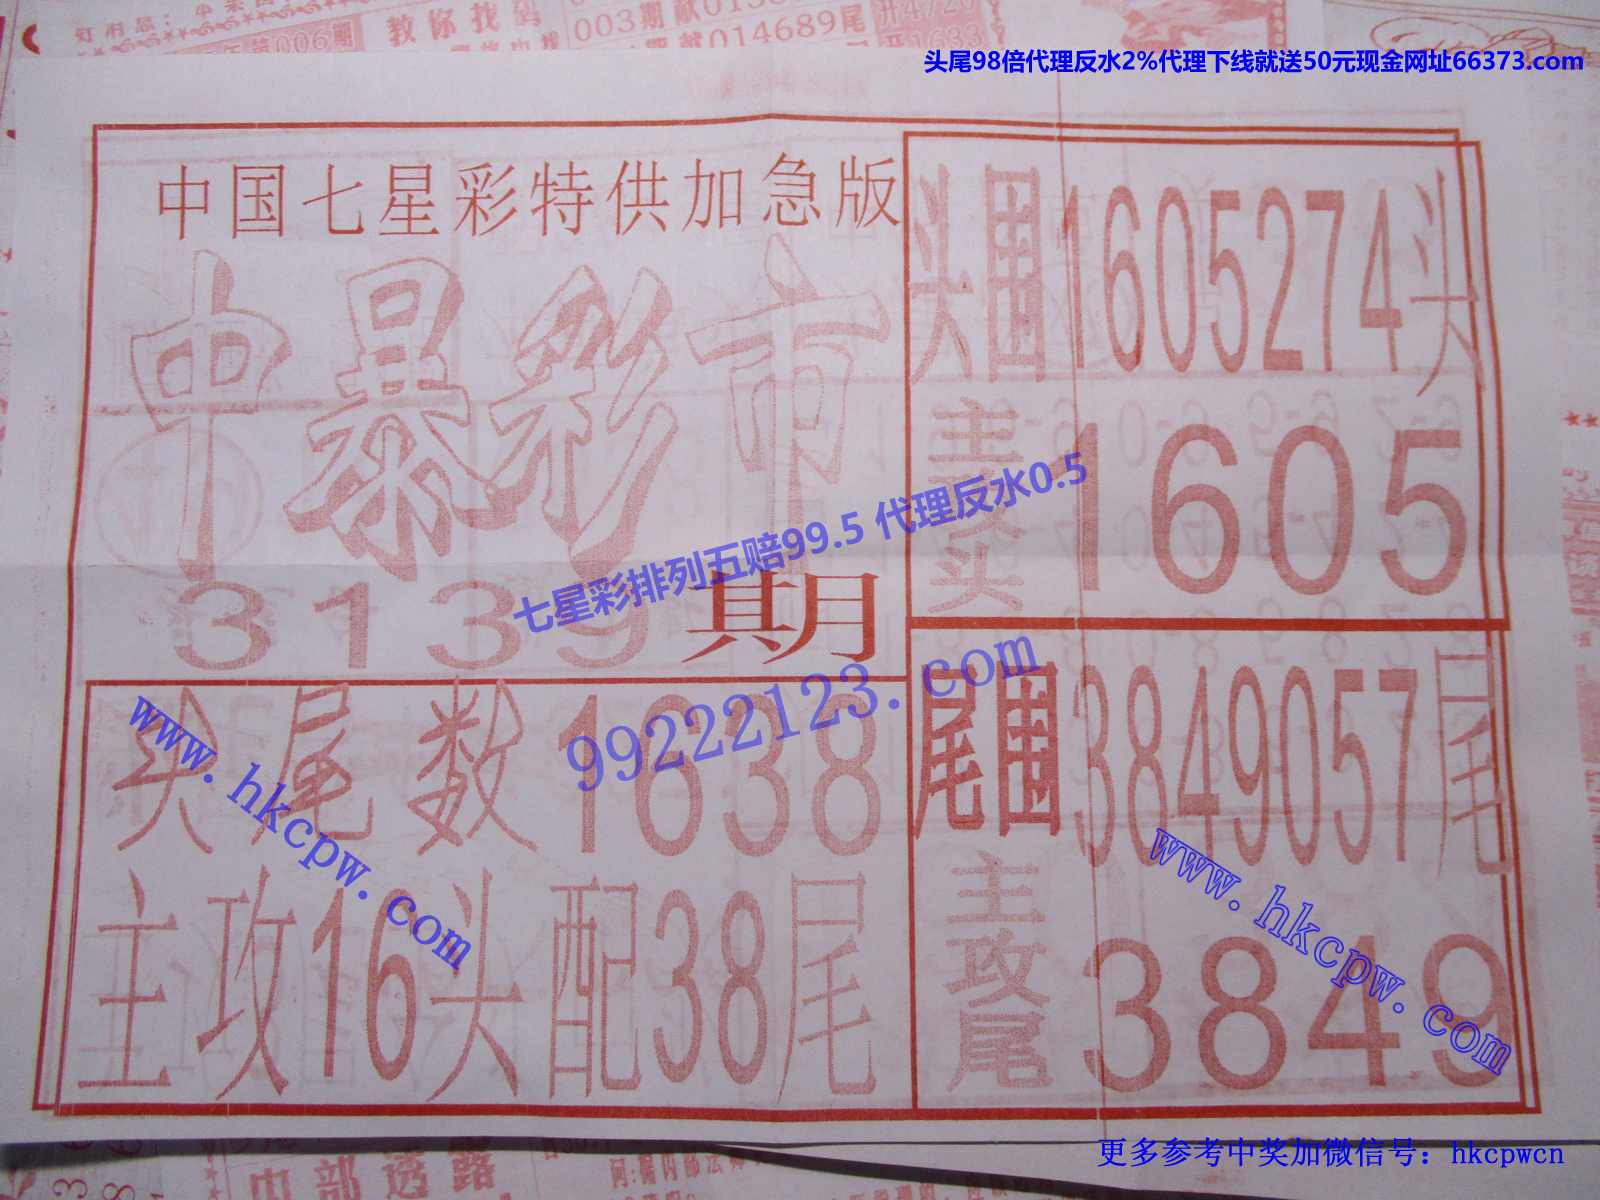 003期
教你找码
006期
014689尾
头尾98倍代理反水2%代理下线就送50元现金网址66373.com
中国七星彩特供加急版
中暴彩市
3139期
七星彩排列五赔99.5 代理反水0.5
99222123.com
头围1605274头
主攻头
1605
头尾数1638
主攻16头配38尾
尾围3849057尾
主攻尾
3849
www.hkcpw.com
www.hkcpw.com
更多参考中奖加微信号：hkcpwcn
内部透路